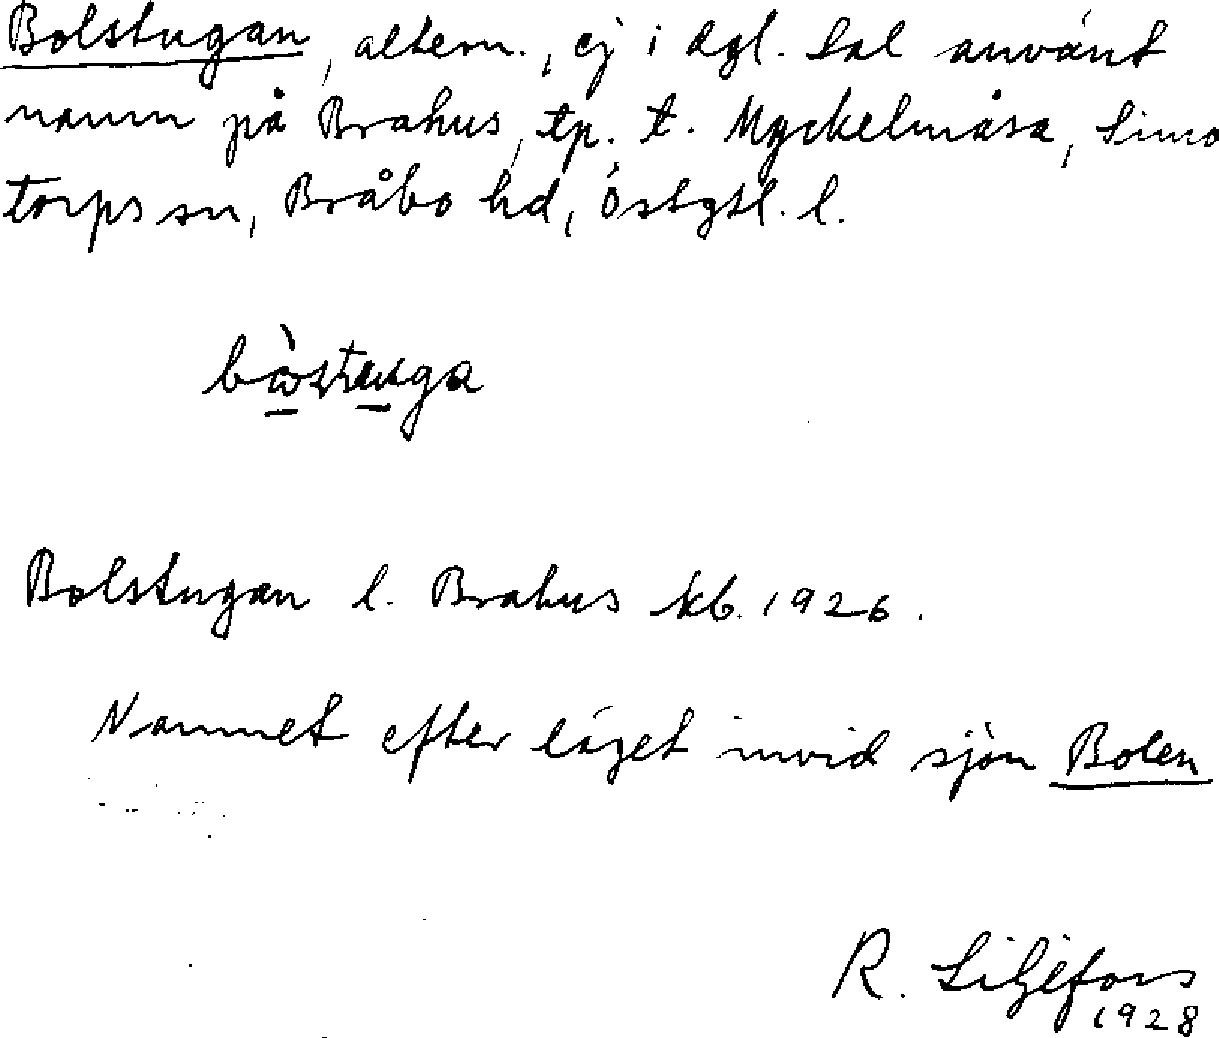 Bolstugan, altern., ej i dgl. tal använt
namn på Brahus, tp. t. Myckelmåsa, Simo
torps sn, Bråbo hd, Östgtl. l.
Bolstugan l. Brahus kb. 1926.
Namnet efter läget invid sjön Bolen
R. Liljefors
1928